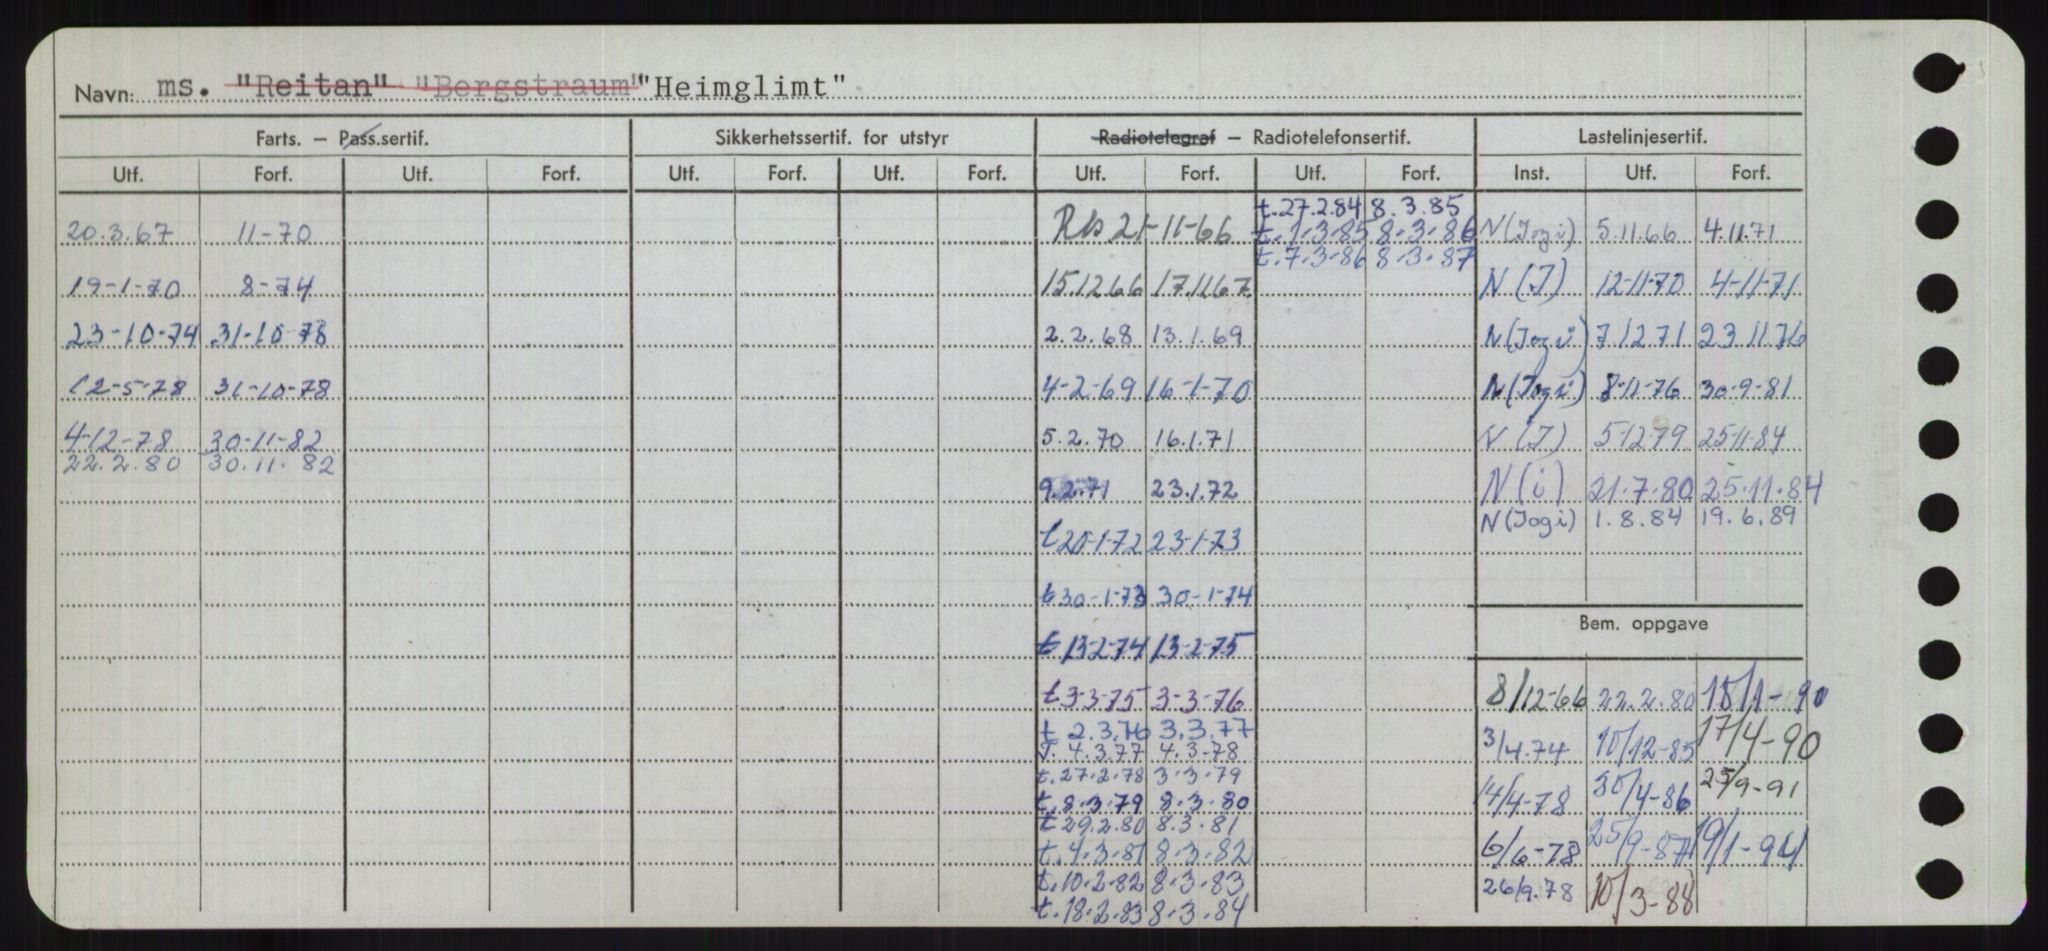 Navn: ms. "Reitan" "Bergstraum" "Heimglimt"
Farts. — Pass.sertif. Sikkerhetssertif. for utstyr Radiotelegraf — Radiotelefonsertif. Lastelinjesertif.
Utf. Forf. Utf. Forf. Utf. Forf. Utf. Forf. Utf. Forf. Utf. Forf. Inst. Utf. Forf.
t.27.2.84 8.3.85
20.3.67 11-70 21-11-66 t.1.3.85 8.3.86 N(Jogi) 5.11.66 4.11.71
t.7.3.86 8.3.87
19-1-70 8-74 15.12 66 17.11 67 N(J) 12-11-70 4-11-71
23-10-74 31-10-78 2.2.68 13.1.69 N(Jogi) 7/12 71 23 11 76
12-5-78 31-10-78 4-2-69 16-1-70 N(Jogi) 8-11-76 30-9-81
4-12-78 30-11-82 5.2.70 16.1.71 N(J) 5-12-79 25-11-84
22.2.80 30.11.82
9.2.71 23.1.72 N(i) 21.7.80 25.11.84
N(Jogi) 1.8.84 19.6.89
t 20-1-72 23-1-73
t 30-1-73 30-1-74
Bem. oppgave
t 13-2-74 13-2-75
t 3-3-75 3-3-76 8/12-66 22.2.80 15/1-90
t 2.3.76 3.3.77 17/4-90
T. 4.3.77 4.3.78 3/4.74 10/12-85
t.27.2.78 3.3.79
t.8.3.79 8.3.80 14/4-78 30/4-86 25/9-91
t 29.2.80 8.3.81
t.4.3.81 8.3.82 6/6-78 25/9-87 19/1-94
t.10.2.82 8.3.83 26/9.78 10/3-88
t.18.2.83 8.3.84